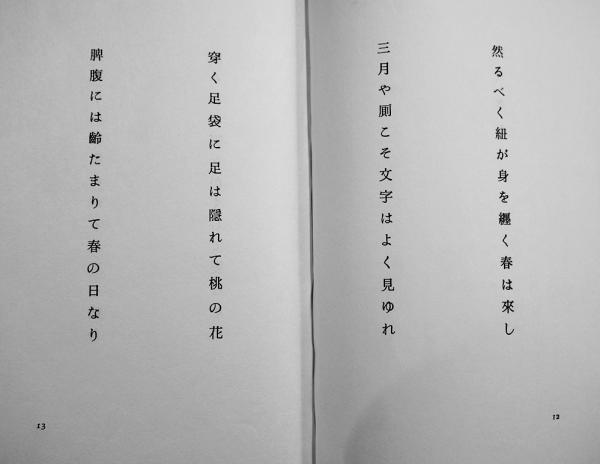 然るべく紐が身を纒く春は來し
三月や厠こそ文字はよく見ゆれ
12
穿く足袋に足は隠れて桃の花
脾腹には齢たまりて春の日なり
13